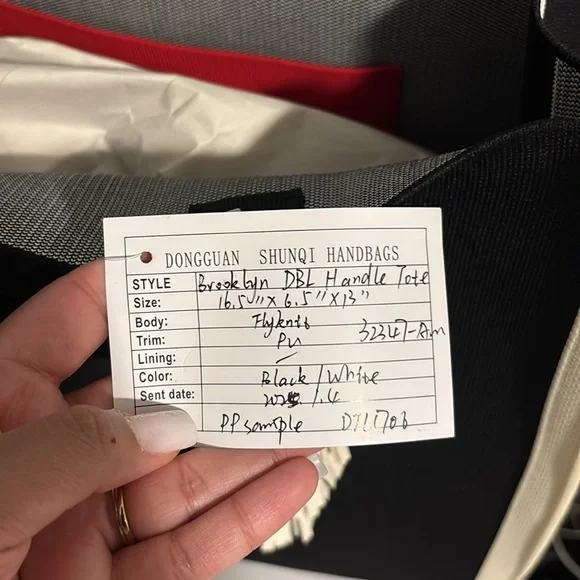 DONGGUAN SHUNQI HANDBAGS
STYLE Brooklyn DBL Handle Tote
Size: 16.5"x 6.5"x13"
Body: Flyknit 32347-Am
Trim: PU
Lining: /
Color: Black/White
Sent date:
PP sample